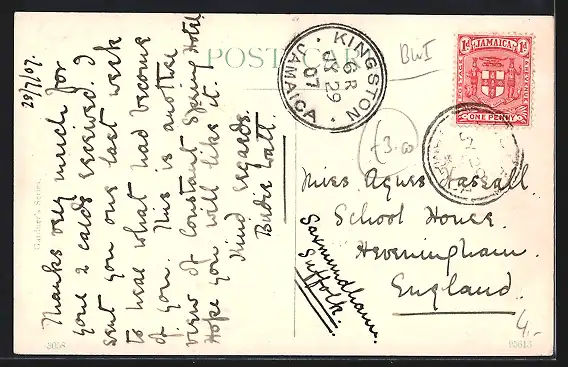 POST CARD
29/7/07.
Thanks very much for
your 2 cards received. I
sent you one last week
to hear what had become
of you. This is another
view of Constant Spring Hotel
Hope you will like it.
Kind regards
KINGSTON
6 R
JY 29
07
JAMAICA
BWI
1d JAMAICA 1d
POSTAGE
ONE PENNY
£3.00
Miss Agnes Hassall
School House
Heveningham.
England.
Saxmundham.
Suffolk.
4.-
Gardner's Series.